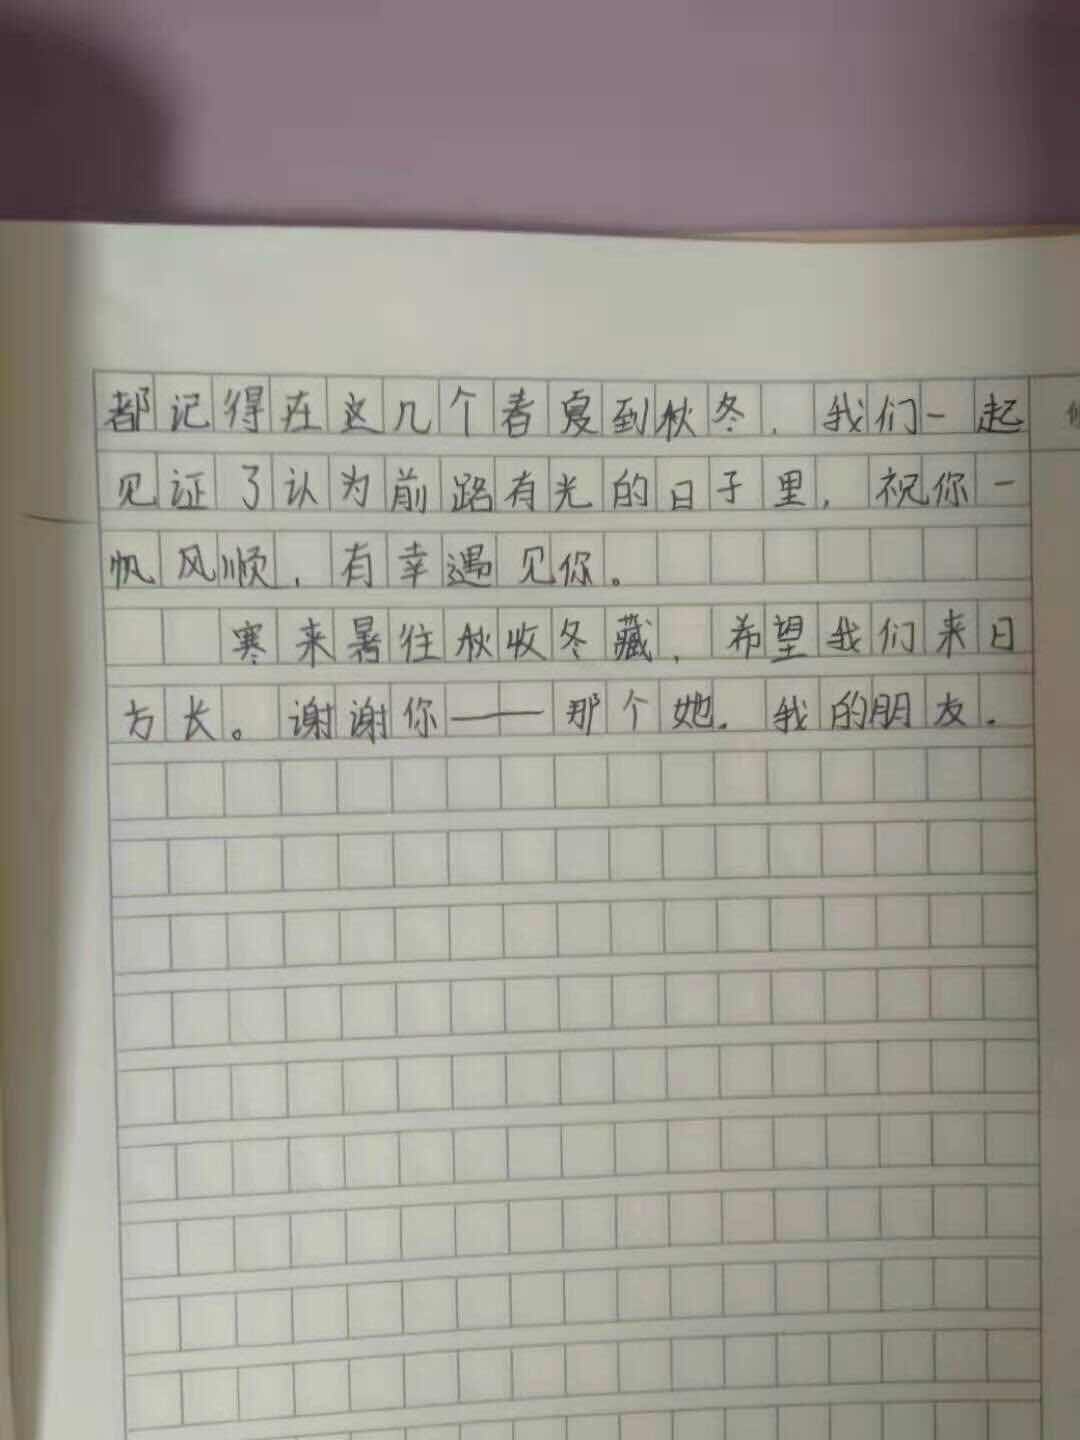 都记得在这几个春夏到秋冬，我们一起
见证了认为前路有光的日子里，祝你一
帆风顺，有幸遇见你。
寒来暑往秋收冬藏，希望我们来日
方长。谢谢你——那个她．我的朋友．